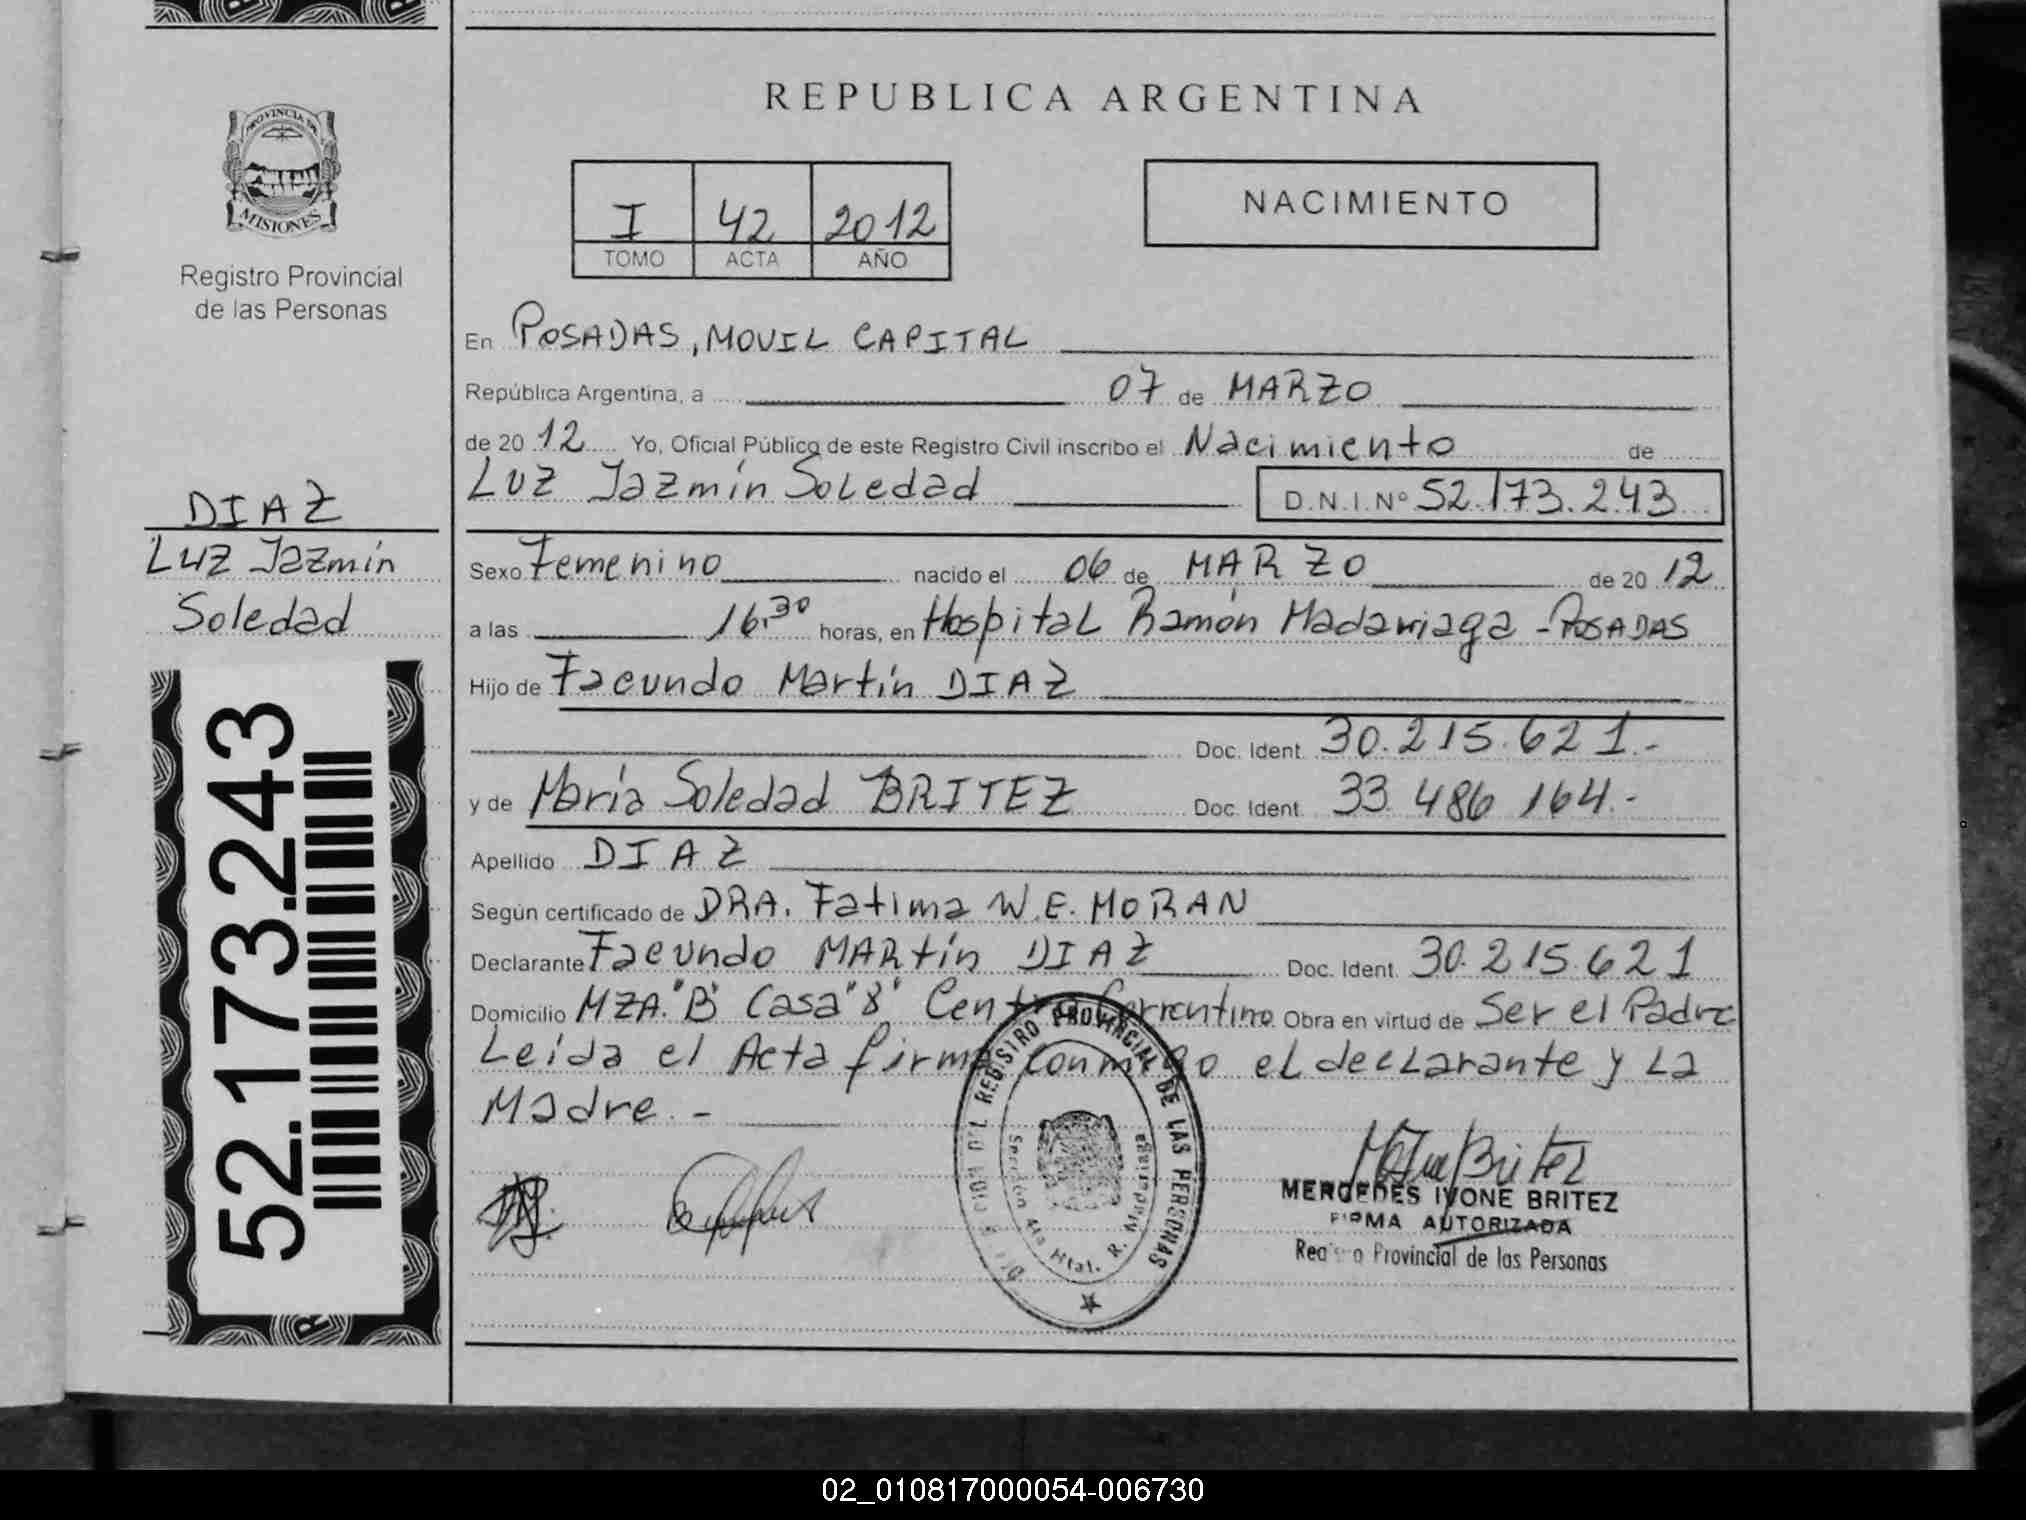 REPUBLICA ARGENTINA
PROVINCIA DE
MISIONES
Registro Provincial
de las Personas
I 42 2012
TOMO ACTA AÑO
NACIMIENTO
En POSADAS, MOVIL CAPITAL
República Argentina, a 07 de MARZO
de 20 12 Yo, Oficial Público de este Registro Civil inscribo el Nacimiento de
Luz Jazmín Soledad D.N.I.Nº 52.173.243
DIAZ
Luz Jazmín
Soledad
52.173.243
Sexo Femenino nacido el 06 de MARZO de 20 12
a las 16.30 horas, en Hospital Ramón Madariaga - POSADAS
Hijo de Facundo Martín DIAZ
Doc. Ident. 30.215.621.-
y de María Soledad BRITEZ Doc. Ident. 33.486.164.-
Apellido DIAZ
Según certificado de DRA. Fatima W.E. MORAN
Declarante Facundo MARtín DIAZ Doc. Ident. 30.215.621
Domicilio MZA. "B" Casa "8" Centro Correntino Obra en virtud de Ser el Padre
Leída el Acta firma conmigo el declarante y La
Madre.-
DEL REGISTRO PROVINCIAL DE LAS PERSONAS
Sección 4ta Htal. R. Madariaga
MERCEDES IVONE BRITEZ
FIRMA AUTORIZADA
Registro Provincial de las Personas
02_010817000054-006730